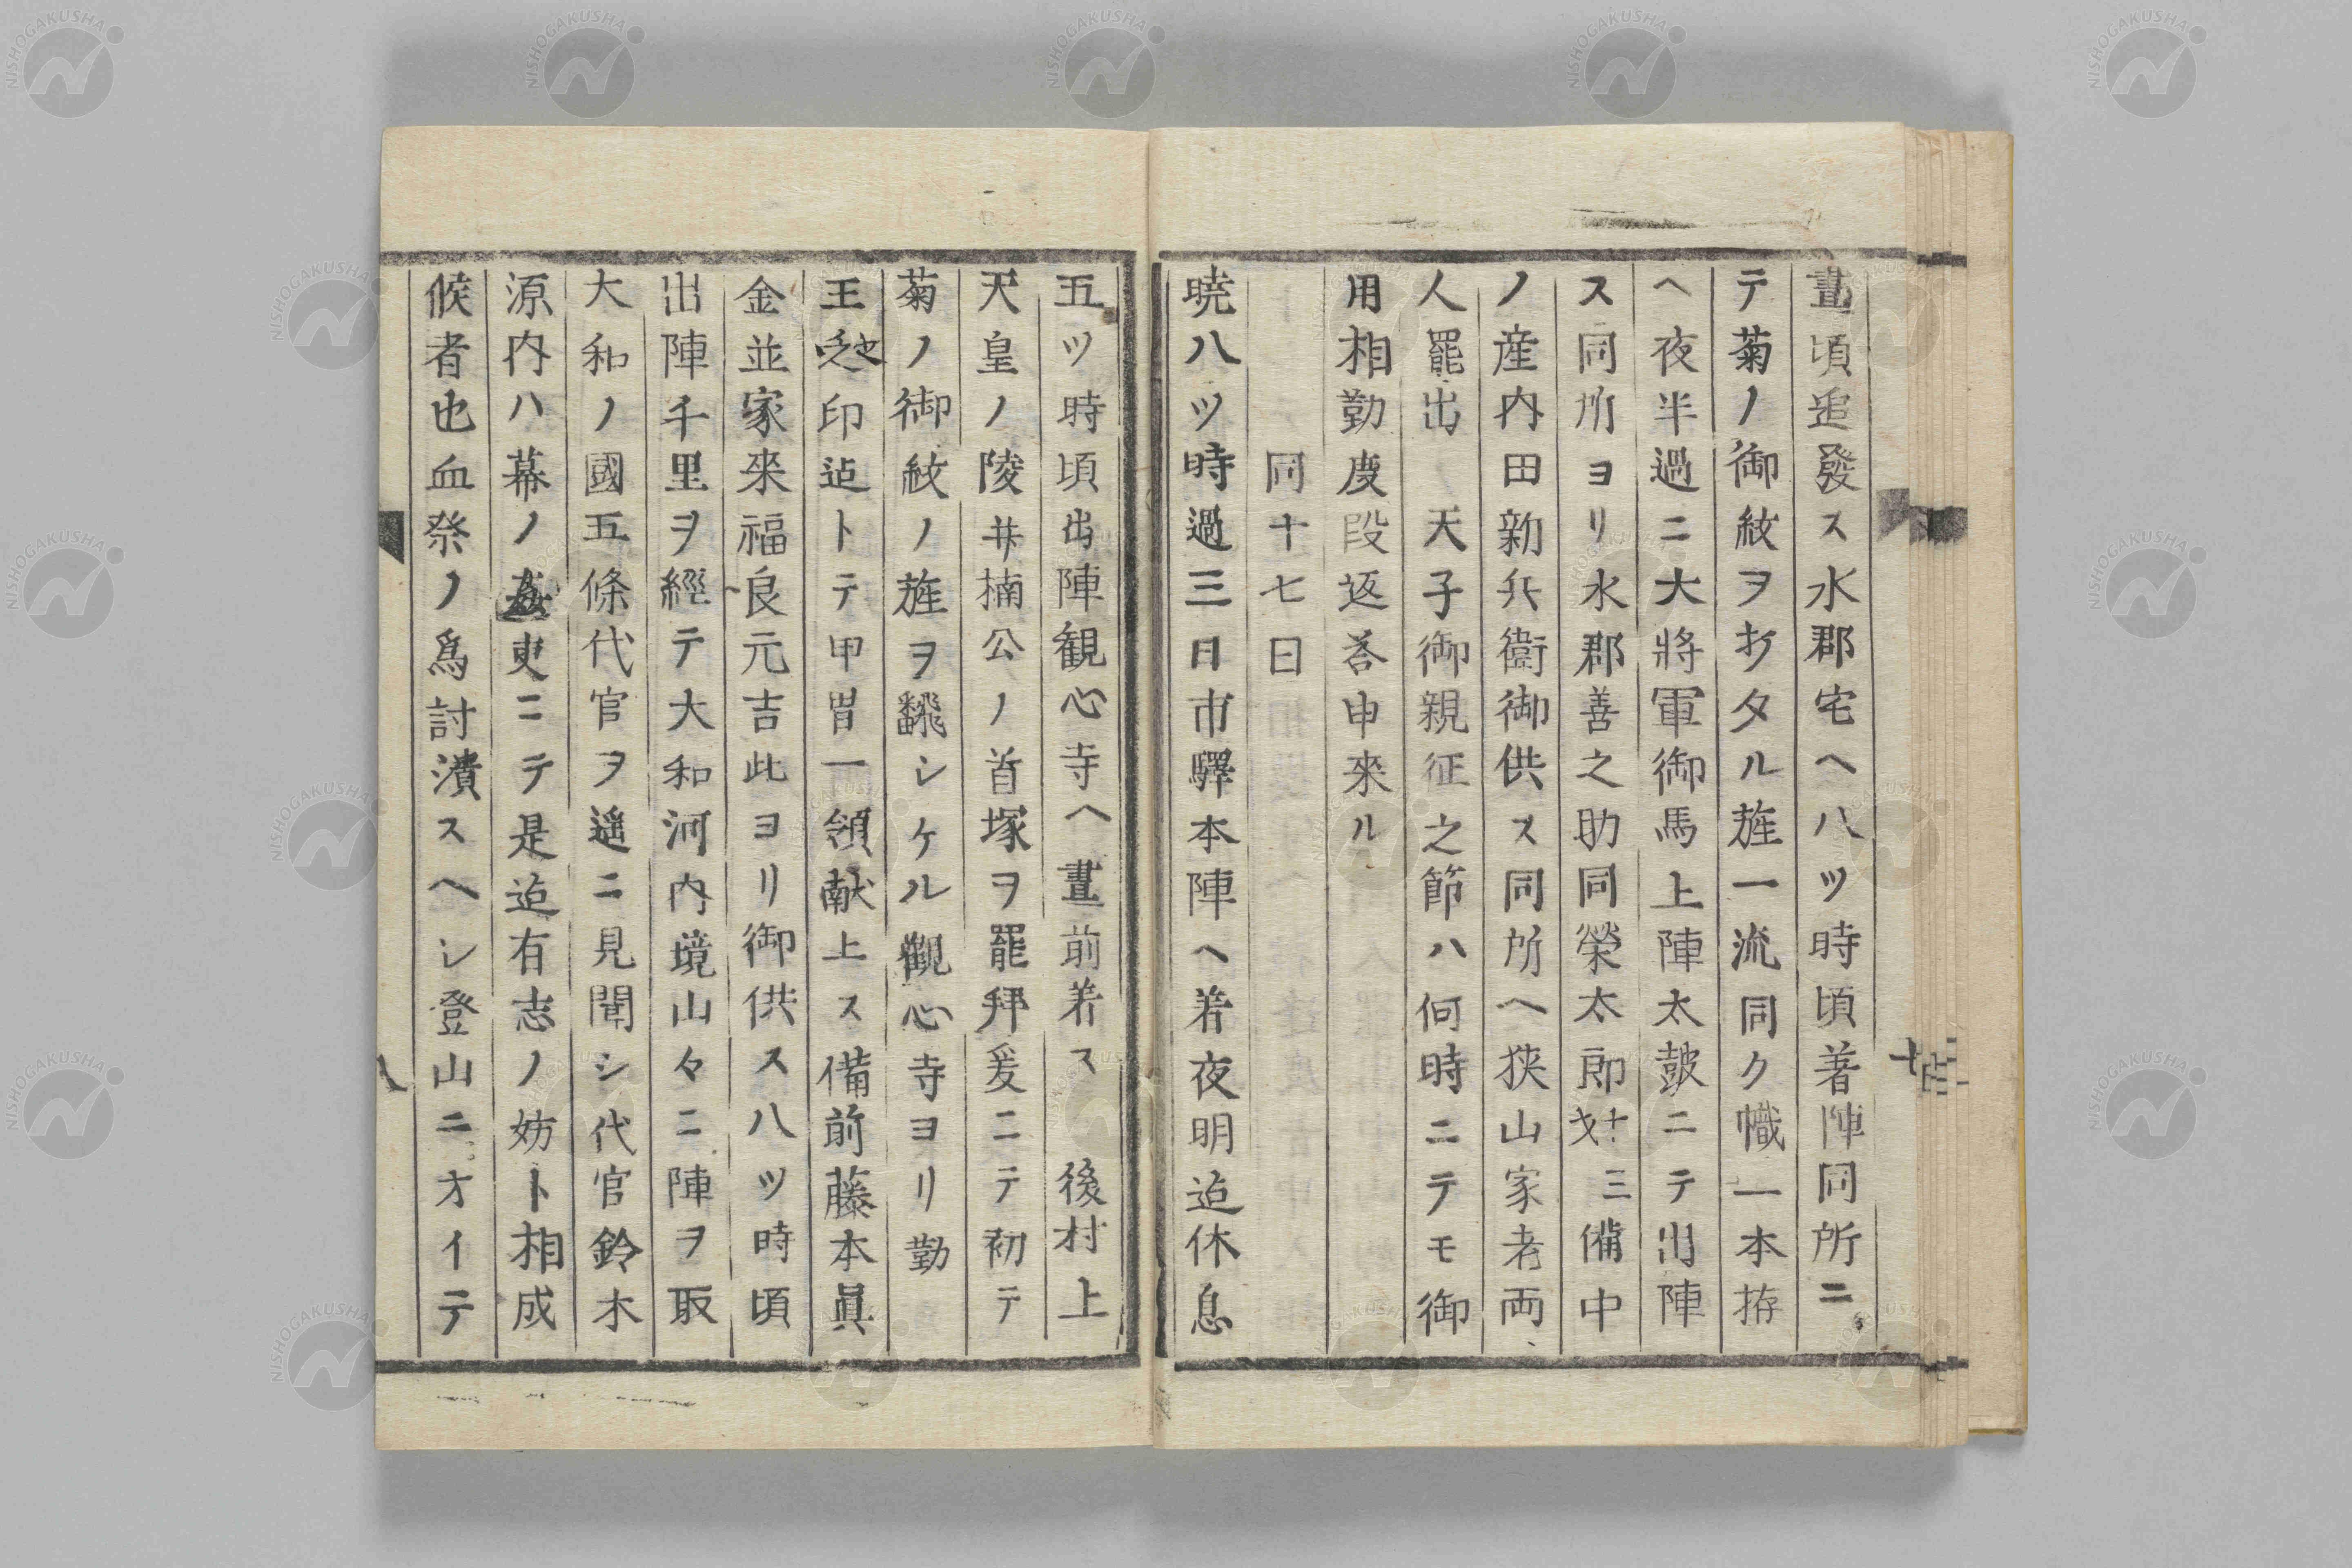 晝頃追發ス水郡宅ヘ八ツ時頃著陣同所ニ
テ菊ノ御紋ヲ打タル旌一流同ク幟一本拵
ヘ夜半過ニ大將軍御馬上陣太皷ニテ出陣
ス同所ヨリ水郡善之助同榮太郎十三才備中
ノ産内田新兵衞御供ス同所ヘ狹山家老両
人罷出 天子御親征之節ハ何時ニテモ御
用相勤度段返荅申來ル
同十七日
暁八ツ時過三日市驛本陣ヘ着夜明迠休息
五ツ時頃出陣観心寺ヘ晝前着ス 後村上
天皇ノ陵并楠公ノ首塚ヲ罷拜爰ニテ初テ
菊ノ御紋ノ旌ヲ飜シケル觀心寺ヨリ勤
王之印迠トテ甲冑一領献上ス備前藤本眞
金並家來福良元吉此ヨリ御供ス八ツ時頃
出陣千里ヲ經テ大和河内境山々ニ陣ヲ取
大和ノ國五條代官ヲ遥ニ見聞シ代官鈴木
源内ハ幕ノ姦吏ニテ是迠有志ノ妨ト相成
候者也血祭ノ爲討潰スヘシ登山ニオイテ